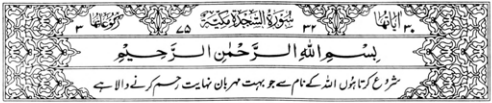 اٰیاتُہا ۳۰ ۳۲ سُوْرَۃُ السَّجْدَۃِ مَکِّیَّۃٌ ۷۵ رُکُوْعَاتُہَا ۳
بِسْمِ اللهِ الرَّحْمٰنِ الرَّحِيْمِ
شروع کرتا ہوں اللہ کے نام سے جو بہت مہربان نہایت رحم کرنے والا ہے